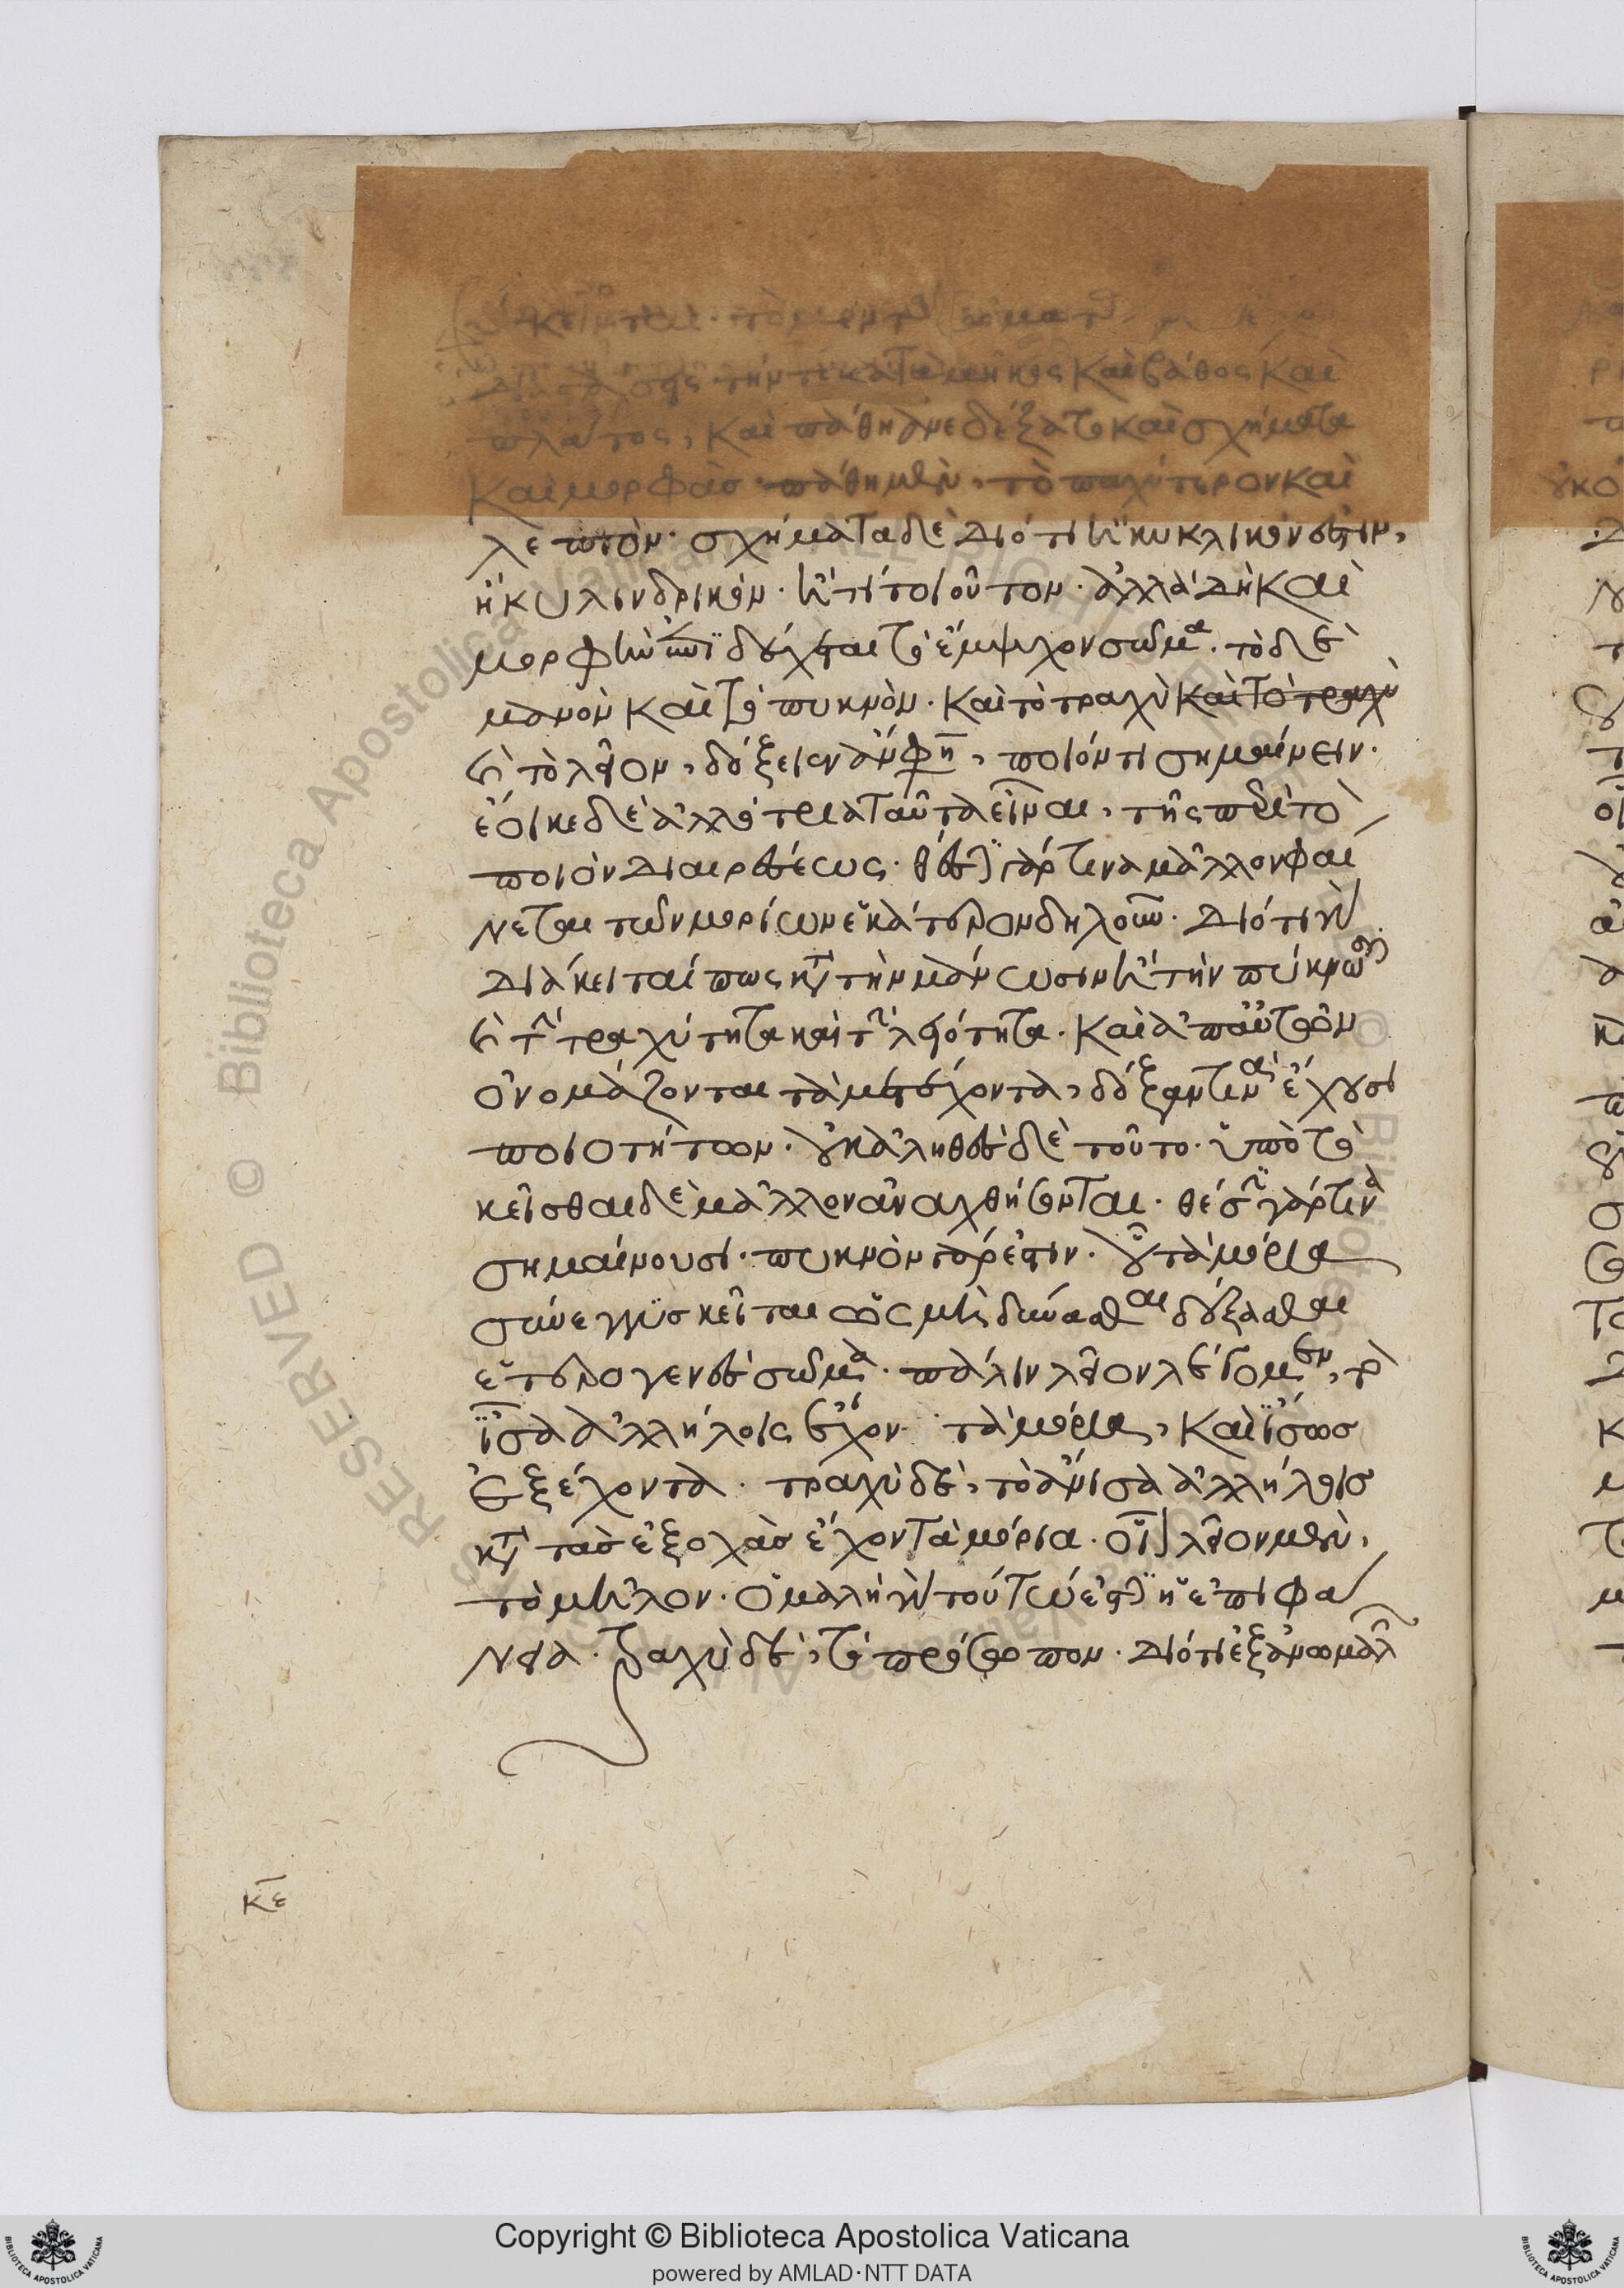 τήν τε κατὰ μῆκος καὶ βάθος καὶ
πλάτος, καὶ πάθη ἀνεδέξατο καὶ σχήματα
καὶ μορφάς· πάθη μὲν, τὸ παχύτερον καὶ
λεπτόν· σχήματα δὲ διότι ἢ κυκλικόν ἐστιν,
ἢ κυλινδρικόν· ἤ τι τοιοῦτον· ἀλλὰ δὴ καὶ
μορφὴν δέχεται τὸ ἔμψυχον σῶμα. τὸ δὲ
μανὸν καὶ τὸ πυκνὸν· καὶ τὸ τραχὺ καὶ τὸ τραχὺ
καὶ τὸ λεῖον, δόξειεν ἂν φη, ποιόν τι σημαίνειν·
ἔοικε δὲ ἀλλότρια ταῦτα εἶναι, τῆς περὶ τὸ
ποιὸν διαιρέσεως· θέσιν γάρ τινα μᾶλλον φαί
νεται τῶν μορίων ἑκάτερον δηλοῦν· διότι γὰρ
διάκειταί πως κατὰ τὴν μάνωσιν ἢ τὴν πύκνωσιν
καὶ τὴν τραχύτητα καὶ τὴν λειότητα· καὶ ἀπ' αὐτῶν
ὀνομάζονται τὰ μετέχοντα, δόξαν τινὰ ἔχουσι
ποιοτήτων· οὐκ ἀληθὲς δὲ τοῦτο· ὑπὸ τὸ
κεῖσθαι δὲ μᾶλλον ἀναχθήσονται· θέσιν γάρ τινα
σημαίνουσι· πυκνὸν γάρ ἐστιν· οὗ τὰ μόρια
σύνεγγυς κεῖται ὡς μὴ δύνασθαι δέξασθαι
ἑτερογενὲς σῶμα· πάλιν λεῖον λέγομεν, τὸ
ἴσα ἀλλήλοις ἔχον τὰ μόρια, καὶ ἴσως
ἐξέχοντα· τραχὺ δὲ, τὸ ἄνισα ἀλλήλοις
κατὰ τὰς ἐξοχὰς ἔχον τὰ μόρια· οἷον λεῖον μὲν,
τὸ μῆλον· ὁμαλὴ γὰρ τούτω ἐστὶν ἡ ἐπιφά
νεια· τραχὺ δὲ, τὸ πρόσωπον· διότι ἐξ ἀνωμάλ
κε
RESERVED © Biblioteca Apostolica Vaticana
Copyright © Biblioteca Apostolica Vaticana
powered by AMLAD·NTT DATA